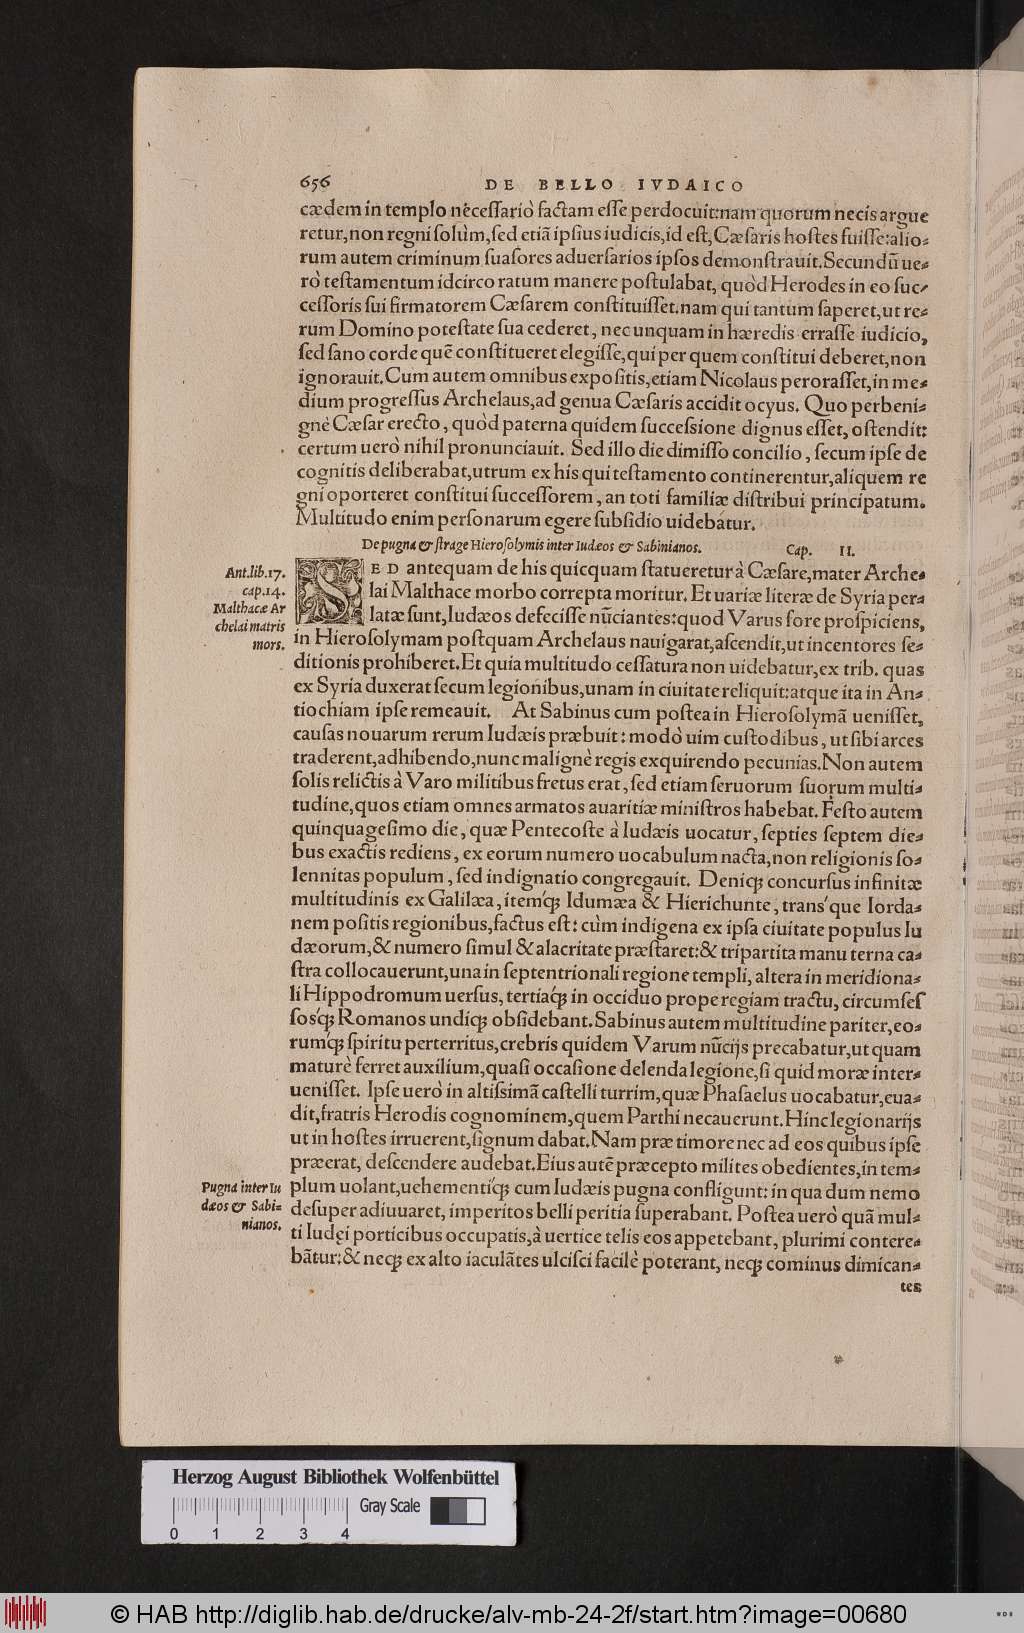 656 DE BELLO IVDAICO
cædem in templo neceſſariò factam eſſe perdocuit:nam quorum necis argue
retur,non regni ſolùm,ſed etiã ipſius iudicis,id eſt,Cæſaris hoſtes fuiſſe:alio-
rum autem criminum ſuaſores aduerſarios ipſos demonſtrauit.Secundũ ue-
rò teſtamentum idcirco ratum manere poſtulabat, quòd Herodes in eo ſuc-
ceſſoris ſui firmatorem Cæſarem conſtituiſſet.nam qui tantum ſaperet,ut re-
rum Domino poteſtate ſua cederet, nec unquam in hæredis erraſſe iudicio,
ſed ſano corde quẽ conſtitueret elegiſſe,qui per quem conſtitui deberet,non
ignorauit.Cum autem omnibus expoſitis,etiam Nicolaus peroraſſet,in me-
dium progreſſus Archelaus,ad genua Cæſaris accidit ocyus. Quo perbeni-
gnè Cæſar erecto, quòd paterna quidem ſucceſsione dignus eſſet, oſtendit:
certum uerò nihil pronunciauit. Sed illo die dimiſſo concilio, ſecum ipſe de
cognitis deliberabat,utrum ex his qui teſtamento continerentur,aliquem re
gni oporteret conſtitui ſucceſſorem, an toti familiæ diſtribui principatum.
Multitudo enim perſonarum egere ſubſidio uidebatur.
De pugna & ſtrage Hieroſolymis inter Iudæos & Sabinianos. Cap. II.
Ant.lib.17.
cap.14.
Malthacæ Ar
chelai matris
mors.
SED antequam de his quicquam ſtatueretur à Cæſare,mater Arche-
lai Malthace morbo correpta moritur. Et uariæ literæ de Syria per-
latæ ſunt,Iudæos defeciſſe nũciantes:quod Varus fore proſpiciens,
in Hieroſolymam poſtquam Archelaus nauigarat,aſcendit,ut incentores ſe-
ditionis prohiberet.Et quia multitudo ceſſatura non uidebatur,ex trib. quas
ex Syria duxerat ſecum legionibus,unam in ciuitate reliquit:atque ita in An-
tiochiam ipſe remeauit. At Sabinus cum poſtea in Hieroſolymã ueniſſet,
cauſas nouarum rerum Iudæis præbuit: modò uim cuſtodibus, ut ſibi arces
traderent,adhibendo,nunc malignè regis exquirendo pecunias.Non autem
ſolis relictis à Varo militibus fretus erat, ſed etiam ſeruorum ſuorum multi-
tudine,quos etiam omnes armatos auaritiæ miniſtros habebat. Feſto autem
quinquageſimo die, quæ Pentecoſte à Iudæis uocatur, ſepties ſeptem die-
bus exactis rediens, ex eorum numero uocabulum nacta,non religionis ſo-
lennitas populum, ſed indignatio congregauit. Deniq; concurſus infinitæ
multitudinis ex Galilæa, itemq́; Idumæa & Hierichunte, trans'que Iorda-
nem poſitis regionibus,factus eſt: cùm indigena ex ipſa ciuitate populus Iu
dæorum,& numero ſimul & alacritate præſtaret:& tripartita manu terna ca-
ſtra collocauerunt,una in ſeptentrionali regione templi, altera in meridiona-
li Hippodromum uerſus, tertiaq́; in occiduo prope regiam tractu, circumſeſ
ſosq́; Romanos undiq; obſidebant.Sabinus autem multitudine pariter,eo-
rumq́; ſpiritu perterritus,crebris quidem Varum nũcijs precabatur,ut quam
maturè ferret auxilium,quaſi occaſione delenda legione,ſi quid moræ inter-
ueniſſet. Ipſe uerò in altiſsimã caſtelli turrim,quæ Phaſaelus uocabatur,eua-
dit,fratris Herodis cognominem,quem Parthi necauerunt.Hinc legionarijs
ut in hoſtes irruerent,ſignum dabat.Nam præ timore nec ad eos quibus ipſe
præerat, deſcendere audebat.Eius autẽ præcepto milites obedientes,in tem-
Pugna inter Iu
dæos & Sabi-
nianos.
plum uolant,uehementiq́; cum Iudæis pugna confligunt: in qua dum nemo
deſuper adiuuaret, imperitos belli peritia ſuperabant. Poſtea uerò quã mul-
ti Iudęi porticibus occupatis,à uertice telis eos appetebant, plurimi contere-
bãtur:& neq; ex alto iaculãtes ulciſci facilè poterant, neq; cominus dimican-
tes
Herzog August Bibliothek Wolfenbüttel
Gray Scale
0 1 2 3 4
© HAB http://diglib.hab.de/drucke/alv-mb-24-2f/start.htm?image=00680